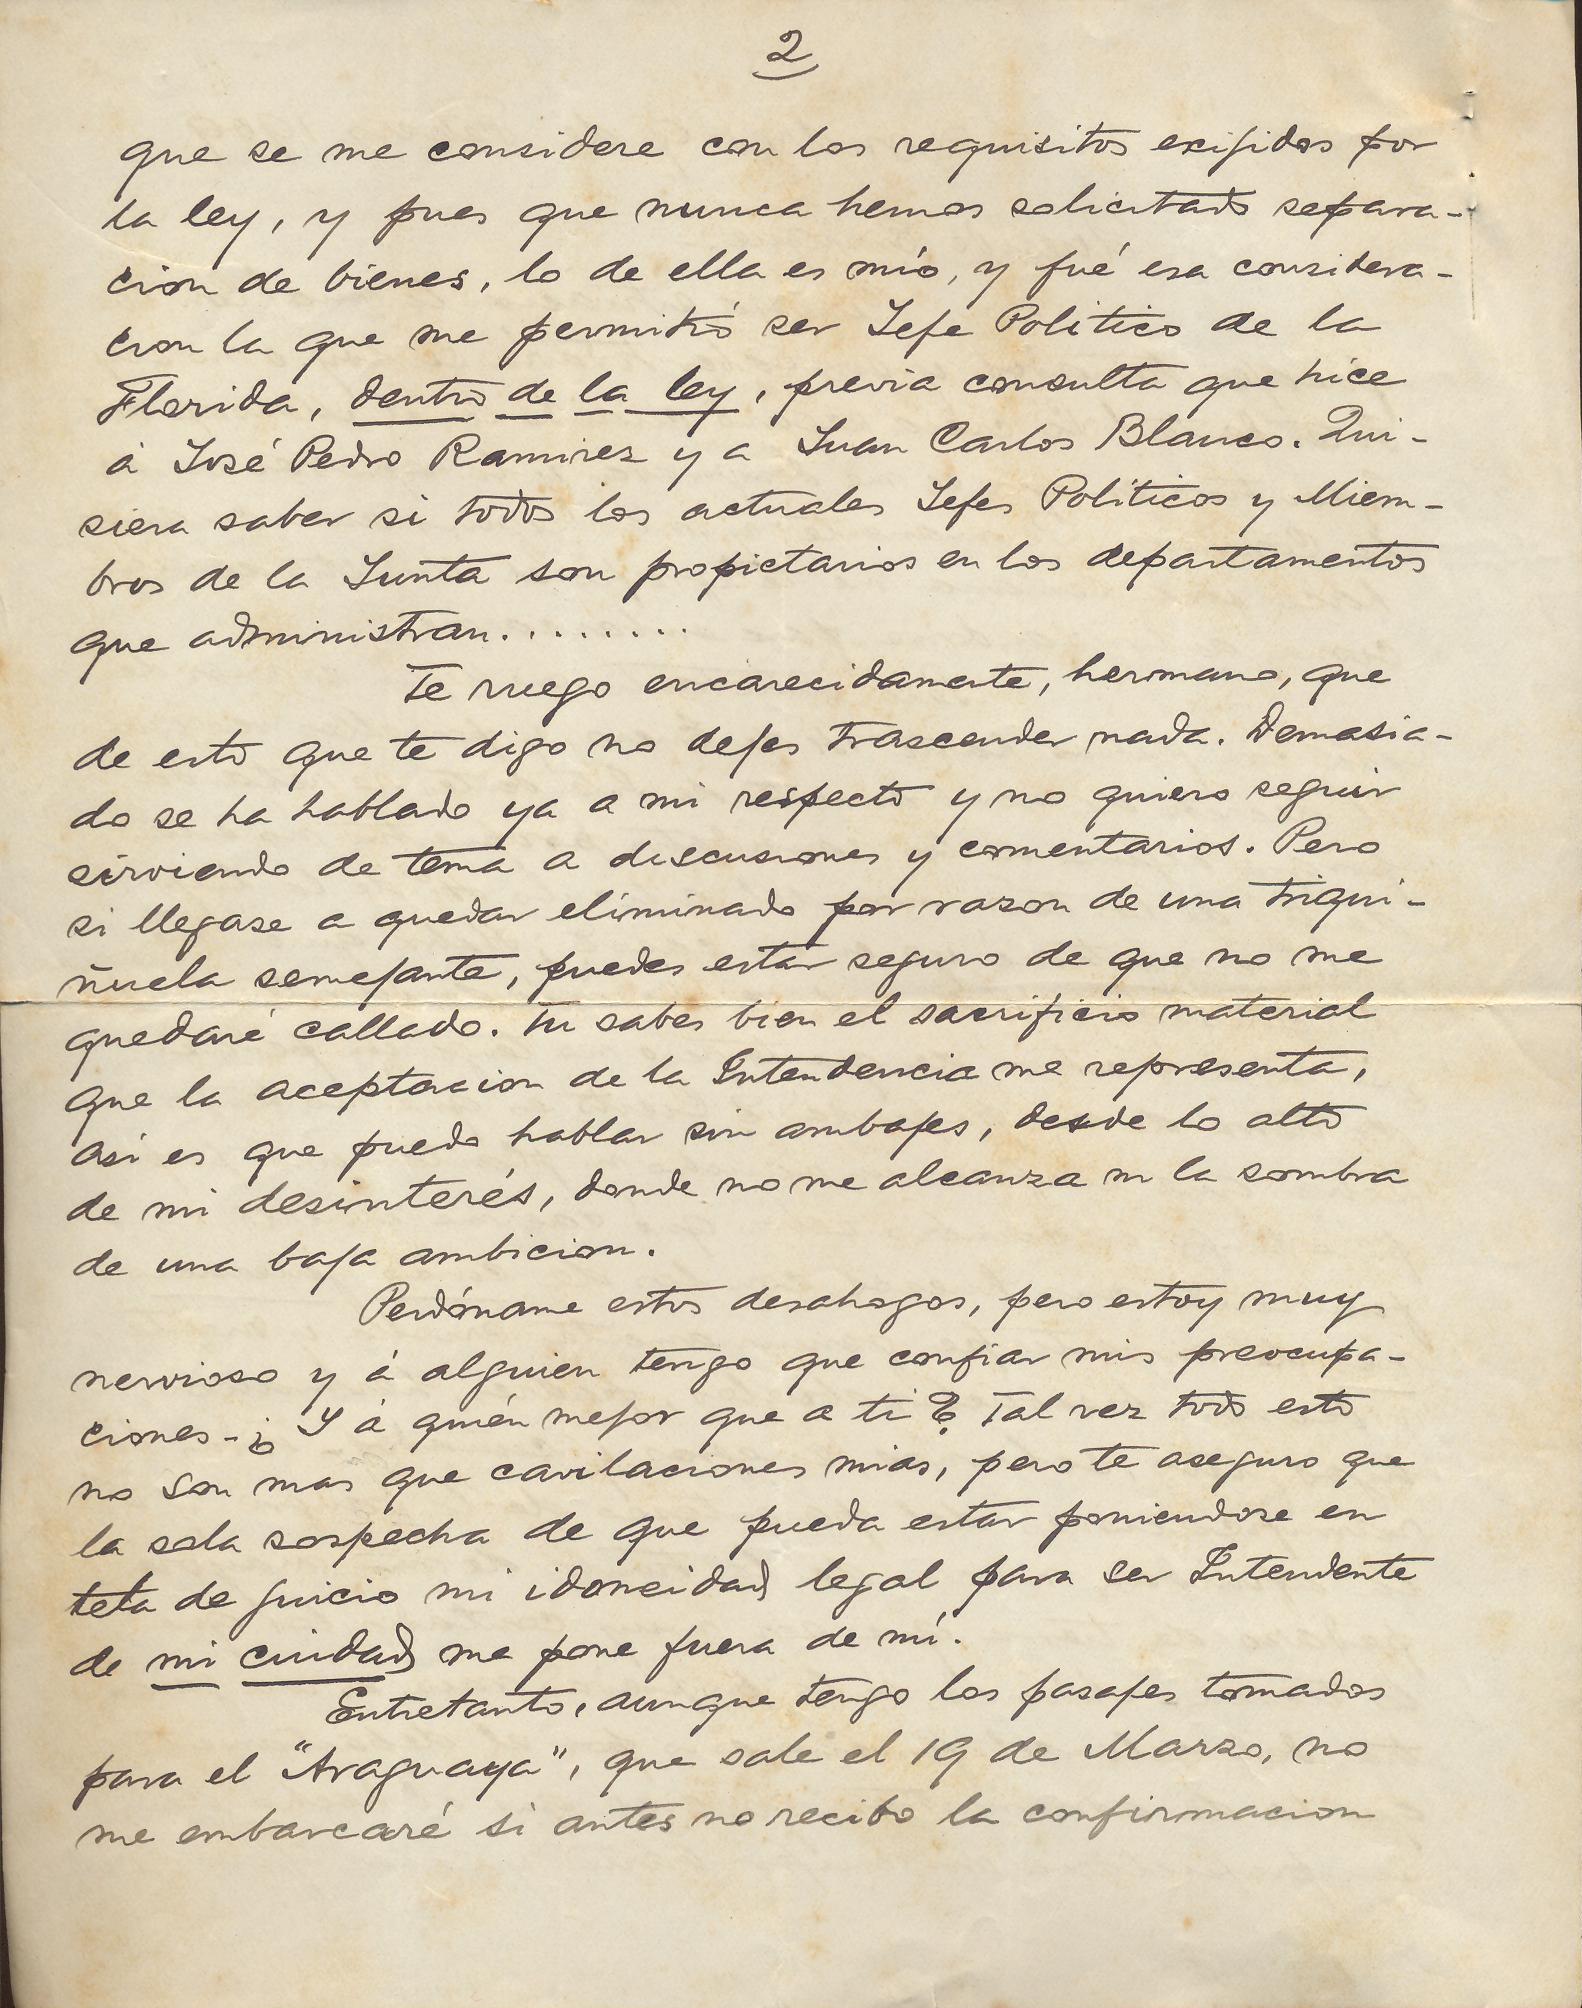 2
que se me considere con los requisitos exijidos por
la ley, y pues que nunca hemos solicitado separa-
cion de bienes, lo de ella es mío, y fué esa considera-
cion la que me permitió ser Jefe Politico de la
Florida, dentro de la ley, previa consulta que hice
á José Pedro Ramirez y a Juan Carlos Blanco. Qui-
siera saber si todos los actuales Jefes Politicos y Miem-
bros de la Junta son propietarios en los departamentos
que administran........
Te ruego encarecidamente, hermano, que
de esto que te digo no dejes trascender nada. Demasia-
do se ha hablado ya a mi respecto y no quiero seguir
sirviendo de tema a discusiones y comentarios. Pero
si llegase a quedar eliminado por razon de una triqui-
ñuela semejante, puedes estar seguro de que no me
quedaré callado. Tu sabes bien el sacrificio material
que la aceptacion de la Intendencia me representa,
asi es que puedo hablar sin ambajes, desde lo alto
de mi desinterés, donde no me alcanza ni la sombra
de una baja ambicion.
Perdóname estos desahogos, pero estoy muy
nervioso y á alguien tengo que confiar mis preocupa-
ciones-¿Y á quién mejor que a ti? Tal vez todo esto
no son mas que cavilaciones mias, pero te aseguro que
la sola sospecha de que pueda estar poniendose en
tela de juicio mi idoneidad legal para ser Intendente
de mi ciudad me pone fuera de mí.
Entretanto, aunque tengo los pasajes tomados
para el "Araguaya", que sale el 19 de Marzo, no
me embarcaré si antes no recibo la confirmacion